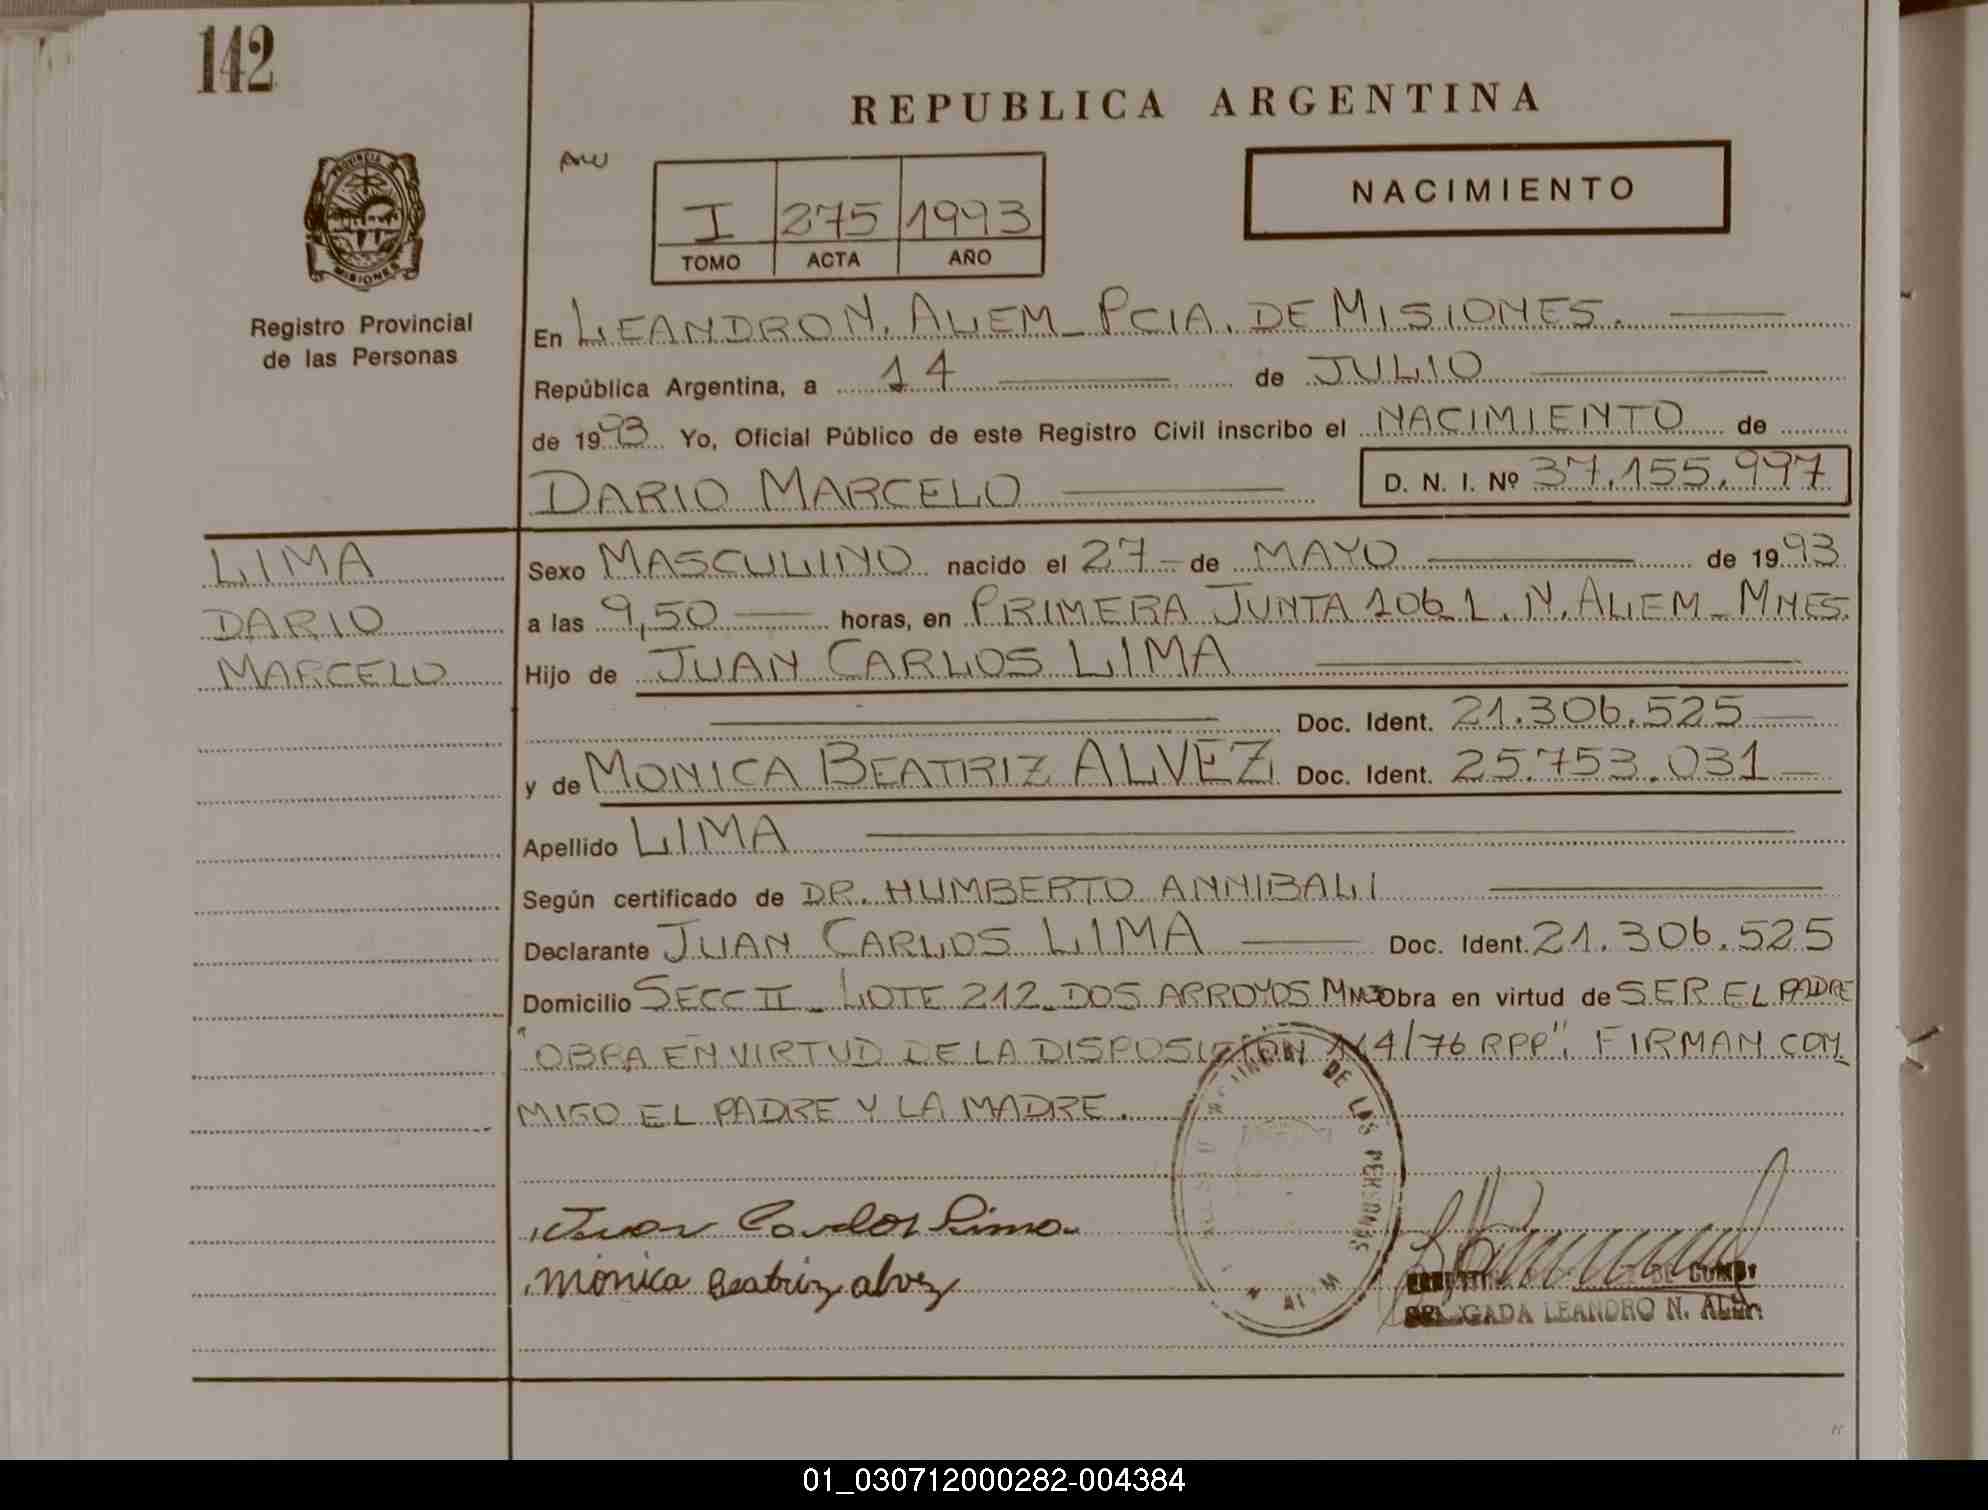 142
REPUBLICA ARGENTINA
NACIMIENTO
I 275 1993
TOMO ACTA AÑO
PROVINCIA DE MISIONES
Registro Provincial
de las Personas
En LEANDRO N. ALEM_ PCIA. DE MISIONES.
República Argentina, a 14 de JULIO
de 1993 Yo, Oficial Público de este Registro Civil inscribo el NACIMIENTO de
DARIO MARCELO D. N. I. Nº 37.155.997
LIMA
DARIO
MARCELO
Sexo MASCULINO nacido el 27 de MAYO de 1993
a las 9,50 horas, en PRIMERA JUNTA 106 L. N. ALEM_ MNES.
Hijo de JUAN CARLOS LIMA
Doc. Ident. 21.306.525
y de MONICA BEATRIZ ALVEZ Doc. Ident. 25.753.031
Apellido LIMA
Según certificado de DR. HUMBERTO ANNIBALI
Declarante JUAN CARLOS LIMA Doc. Ident. 21.306.525
Domicilio SECC II_ LOTE 212_ DOS ARROYOS Obra en virtud de SER EL PADRE
"OBRA EN VIRTUD DE LA DISPOSICION /76 RPP". FIRMAN CON_
MIGO EL PADRE Y LA MADRE.
DE LAS PERSONAS
Juan Carlos Lima
Monica Beatriz alvez
LEANDRO N. ALEM
01_030712000282-004384